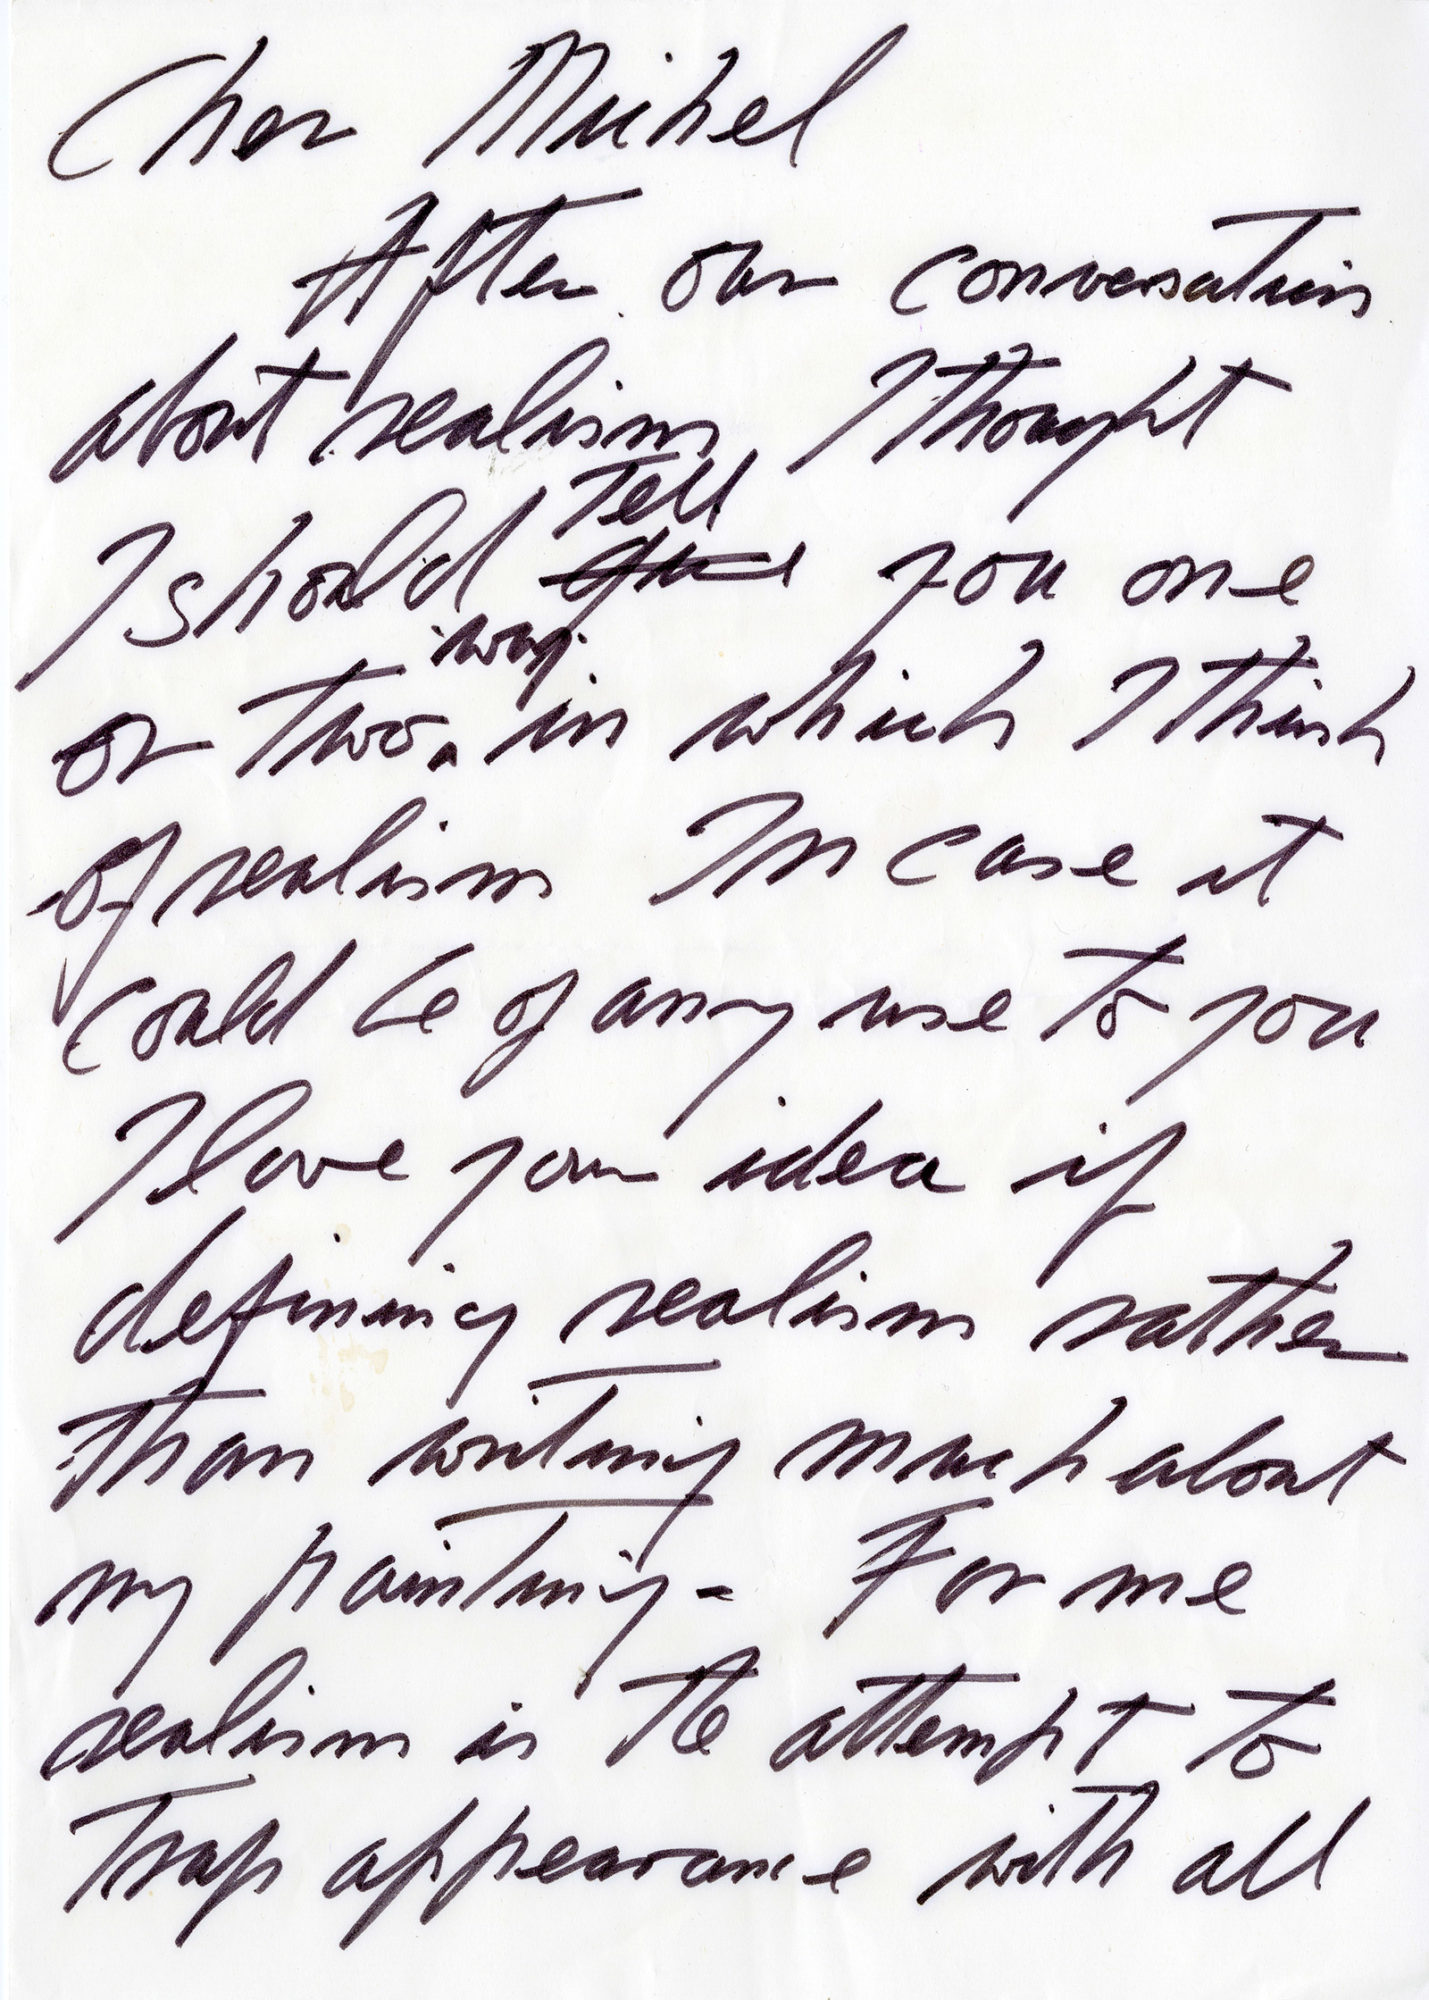 Cher Michel
After our conversation
about realism I thought
I should tell you one
or two way in which I think
of realism In case it
could be of any use to you
I love your idea if
defining realism rather
than writing much about
my painting - For me
realism is the attempt to
trap appearance with all